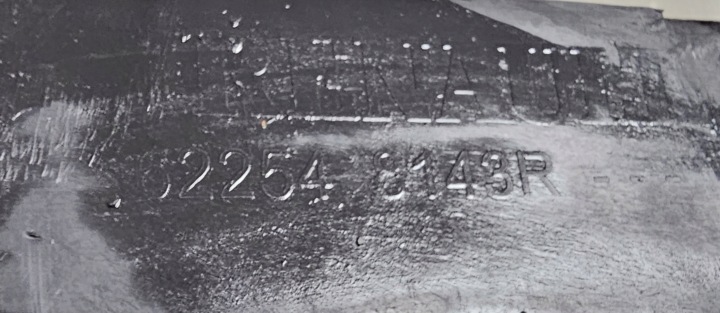 RENAULT
62254 8143R ---